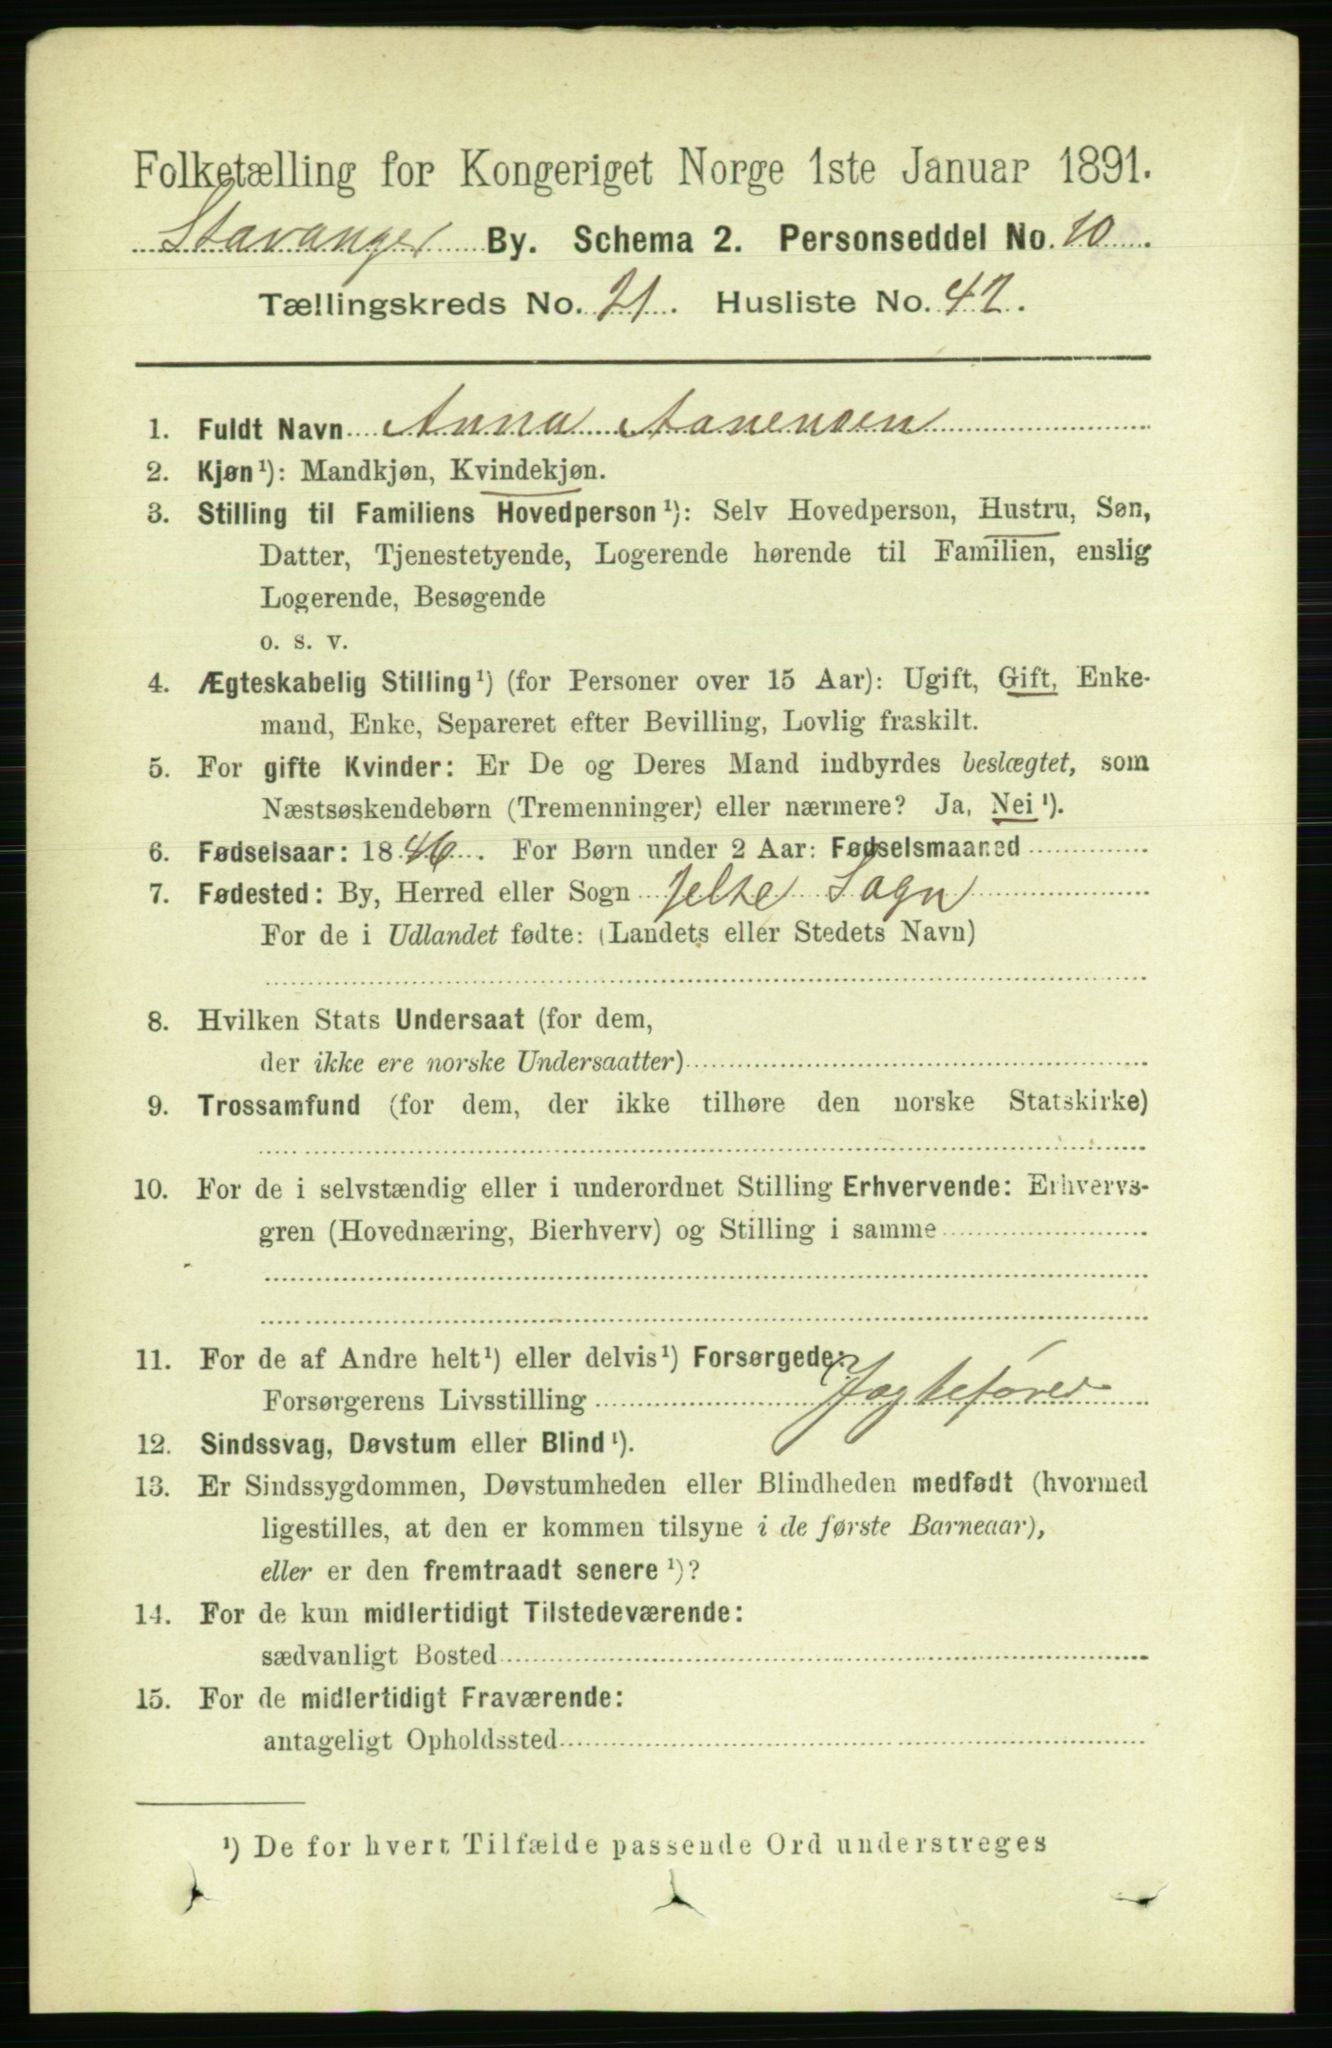 Folketælling for Kongeriget Norge 1ste Januar 1891.
Stavanger By. Schema 2. Personseddel No. 10
Tællingskreds No. 21. Husliste No. 42.
1. Fuldt Navn Anna Aanensen
2. Kjøn¹): Mandkjøn, Kvindekjøn.
3. Stilling til Familiens Hovedperson¹): Selv Hovedperson, Hustru, Søn,
Datter, Tjenestetyende, Logerende hørende til Familien, enslig
Logerende, Besøgende
o. s. v.
4. Ægteskabelig Stilling¹) (for Personer over 15 Aar): Ugift, Gift, Enke-
mand, Enke, Separeret efter Bevilling, Lovlig fraskilt.
5. For gifte Kvinder: Er De og Deres Mand indbyrdes beslægtet, som
Næstsøskendebørn (Tremenninger) eller nærmere? Ja, Nei¹).
6. Fødselsaar: 1846. For Børn under 2 Aar: Fødselsmaaned
7. Fødested: By, Herred eller Sogn Jelse Sogn
For de i Udlandet fødte: (Landets eller Stedets Navn)
8. Hvilken Stats Undersaat (for dem,
der ikke ere norske Undersaatter)
9. Trossamfund (for dem, der ikke tilhøre den norske Statskirke)
10. For de i selvstændig eller i underordnet Stilling Erhvervende: Erhvervs-
gren (Hovednæring, Bierhverv) og Stilling i samme
11. For de af Andre helt¹) eller delvis¹) Forsørgede:
Forsørgerens Livsstilling Jagtefører
12. Sindssvag, Døvstum eller Blind¹).
13. Er Sindssygdommen, Døvstumheden eller Blindheden medfødt (hvormed
ligestilles, at den er kommen tilsyne i de første Barneaar),
eller er den fremtraadt senere¹)?
14. For de kun midlertidigt Tilstedeværende:
sædvanligt Bosted
15. For de midlertidigt Fraværende:
antageligt Opholdssted
¹) De for hvert Tilfælde passende Ord understreges